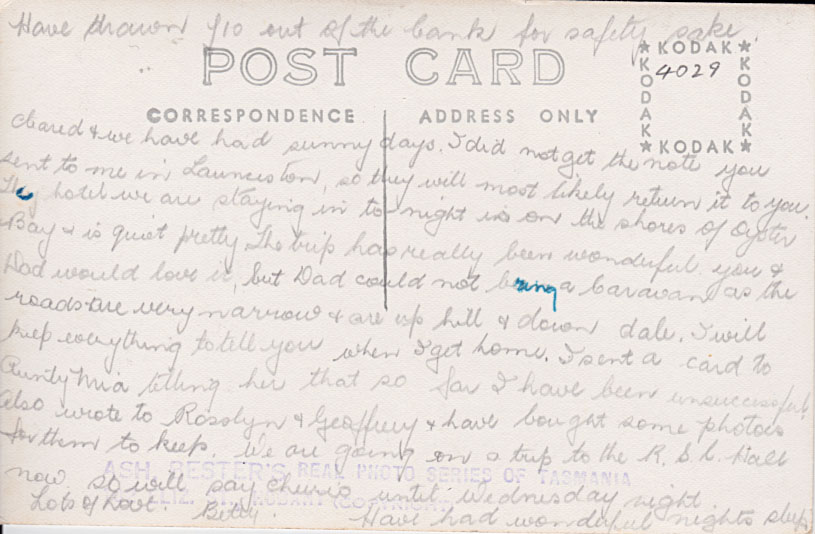 Have drawn £10 out of the bank for safety sake.
POST CARD
KODAK
KODAK
KODAK
KODAK
4029
CORRESPONDENCE
ADDRESS ONLY
cleared & we have had sunny days. I did not get the note you
sent to me in Launceston, so they will most likely return it to you.
The hotel we are staying in to-night is on the shores of Oyster
Bay & is quiet pretty. The trip has really been wonderful, you &
Dad would love it, but Dad could not bring a Caravan as the
roads are very narrow & are up hill & down dale. I will
keep everything to tell you when I get home. I sent a card to
Aunty Mia telling her that so far I have been unsuccessful.
Also wrote to Rosslyn & Geoffrey & have bought some photos
for them to keep. We are going on a trip to the R.S.L. Hall
ASH BESTER'S REAL PHOTO SERIES OF TASMANIA
now so will say cheerio until Wednesday night
ELIZ. ST. HOBART (COPYRIGHT)
Lots of Love. Betty. Have had wonderful nights sleep